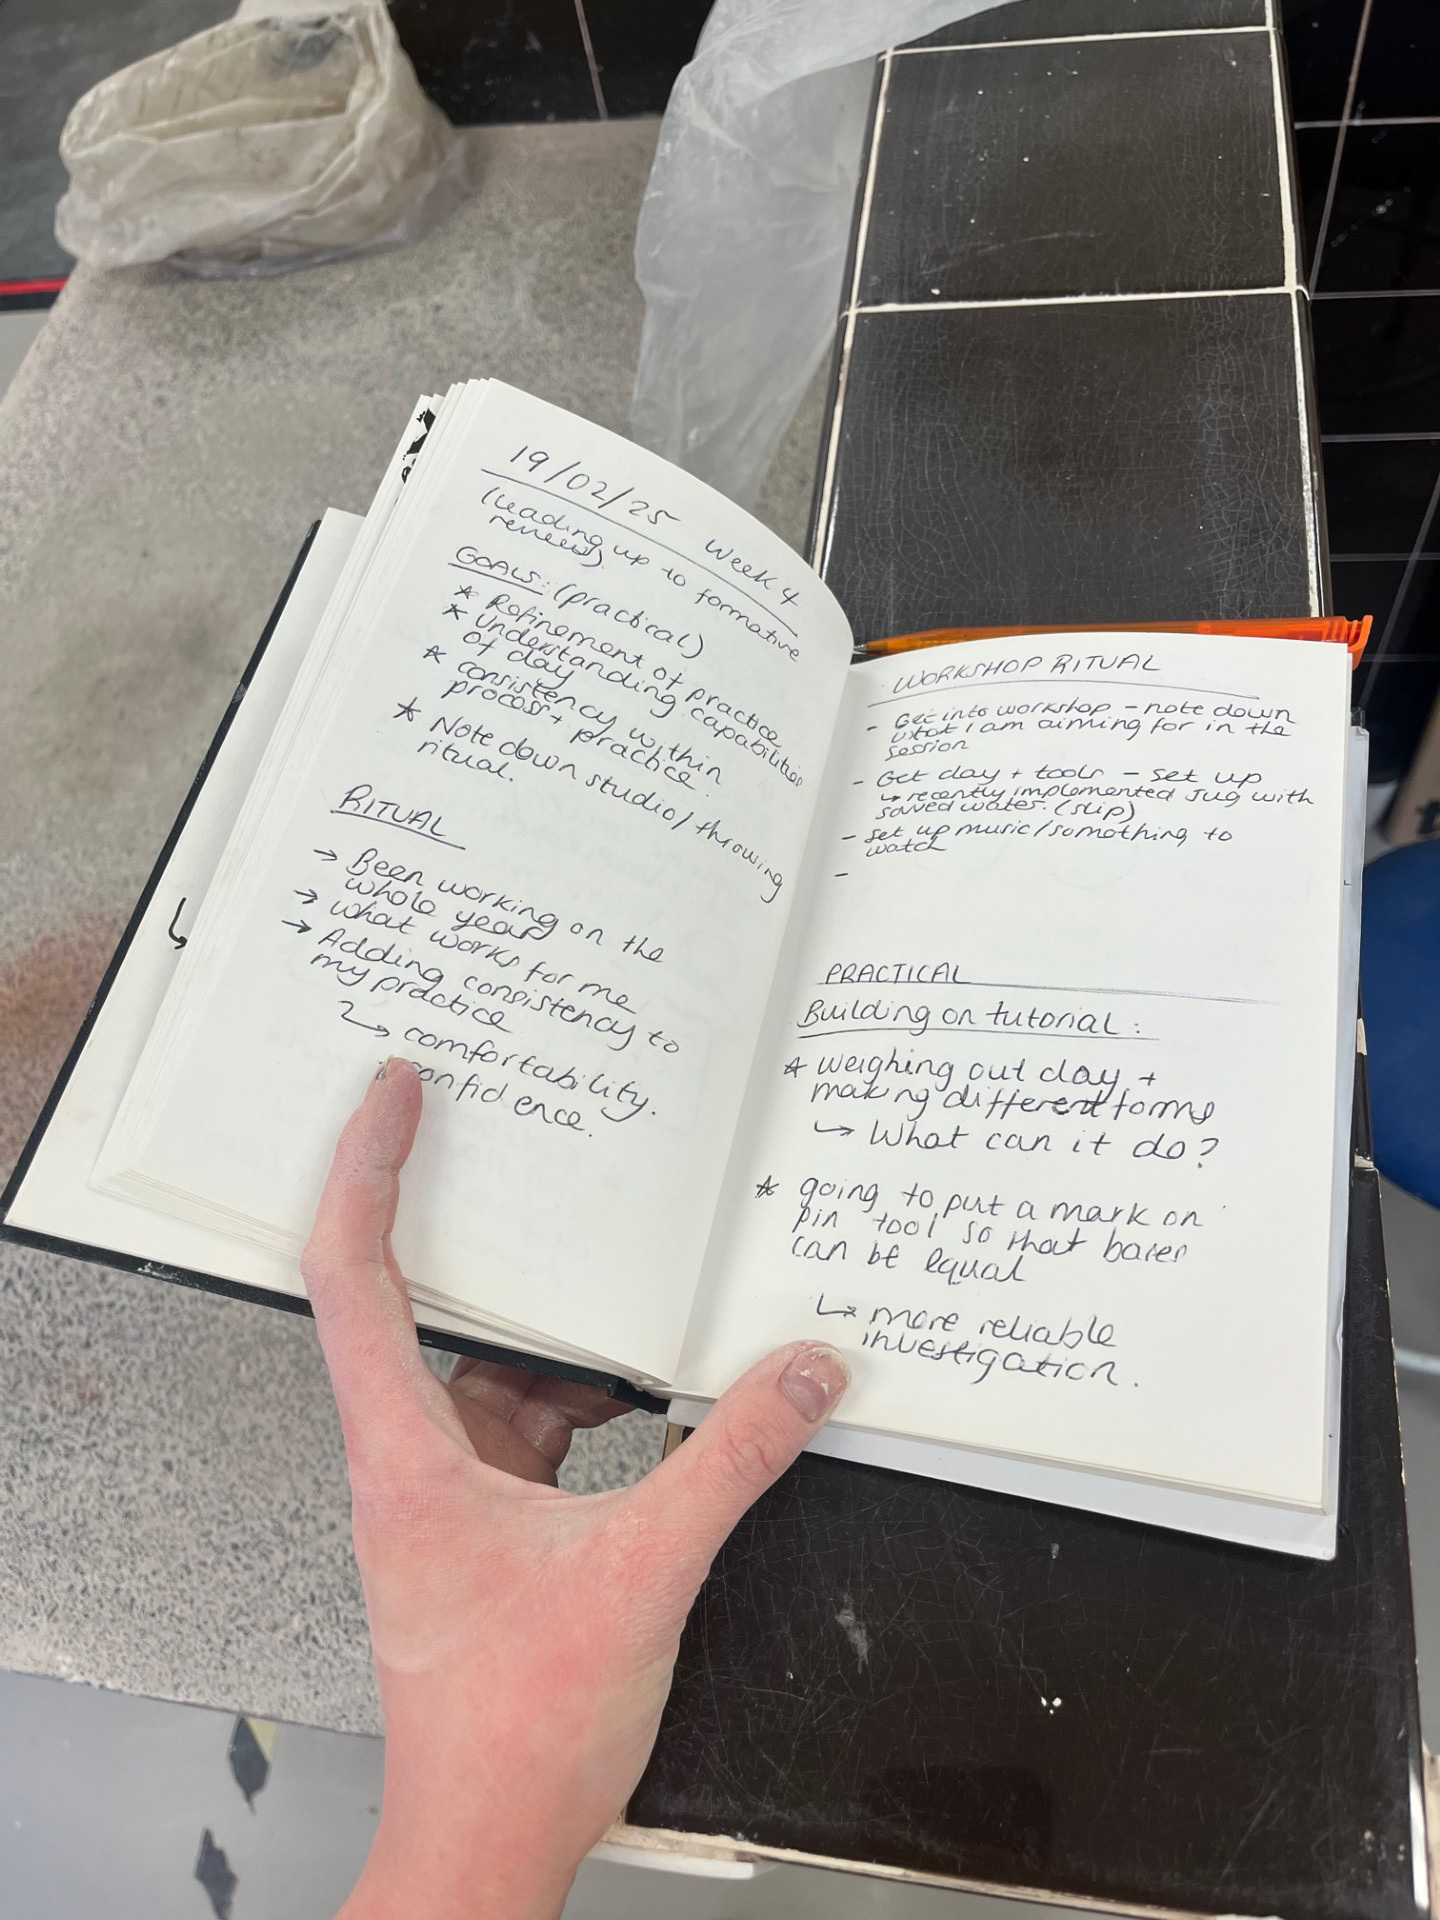 19/02/25 Week 4
(Leading up to formative
review).
GOALS: (practical)
* Refinement of practice
* Understanding capabilities
of clay
* consistency within
process + practice.
* Note down studio/throwing
ritual.
RITUAL
→ Been working on the
whole year
→ what works for me
→ Adding consistency to
my practice
↳ comfortability.
confidence.
WORKSHOP RITUAL
- Get into workshop - note down
what I am aiming for in the
session
- Get clay + tools - set up
↳ recently implemented jug with
saved water. (slip)
- set up music/something to
watch
-
PRACTICAL
Building on tutorial:
* weighing out clay +
making different forms
↳ What can it do?
* going to put a mark on
pin tool so that bases
can be equal
↳ more reliable
investigation.